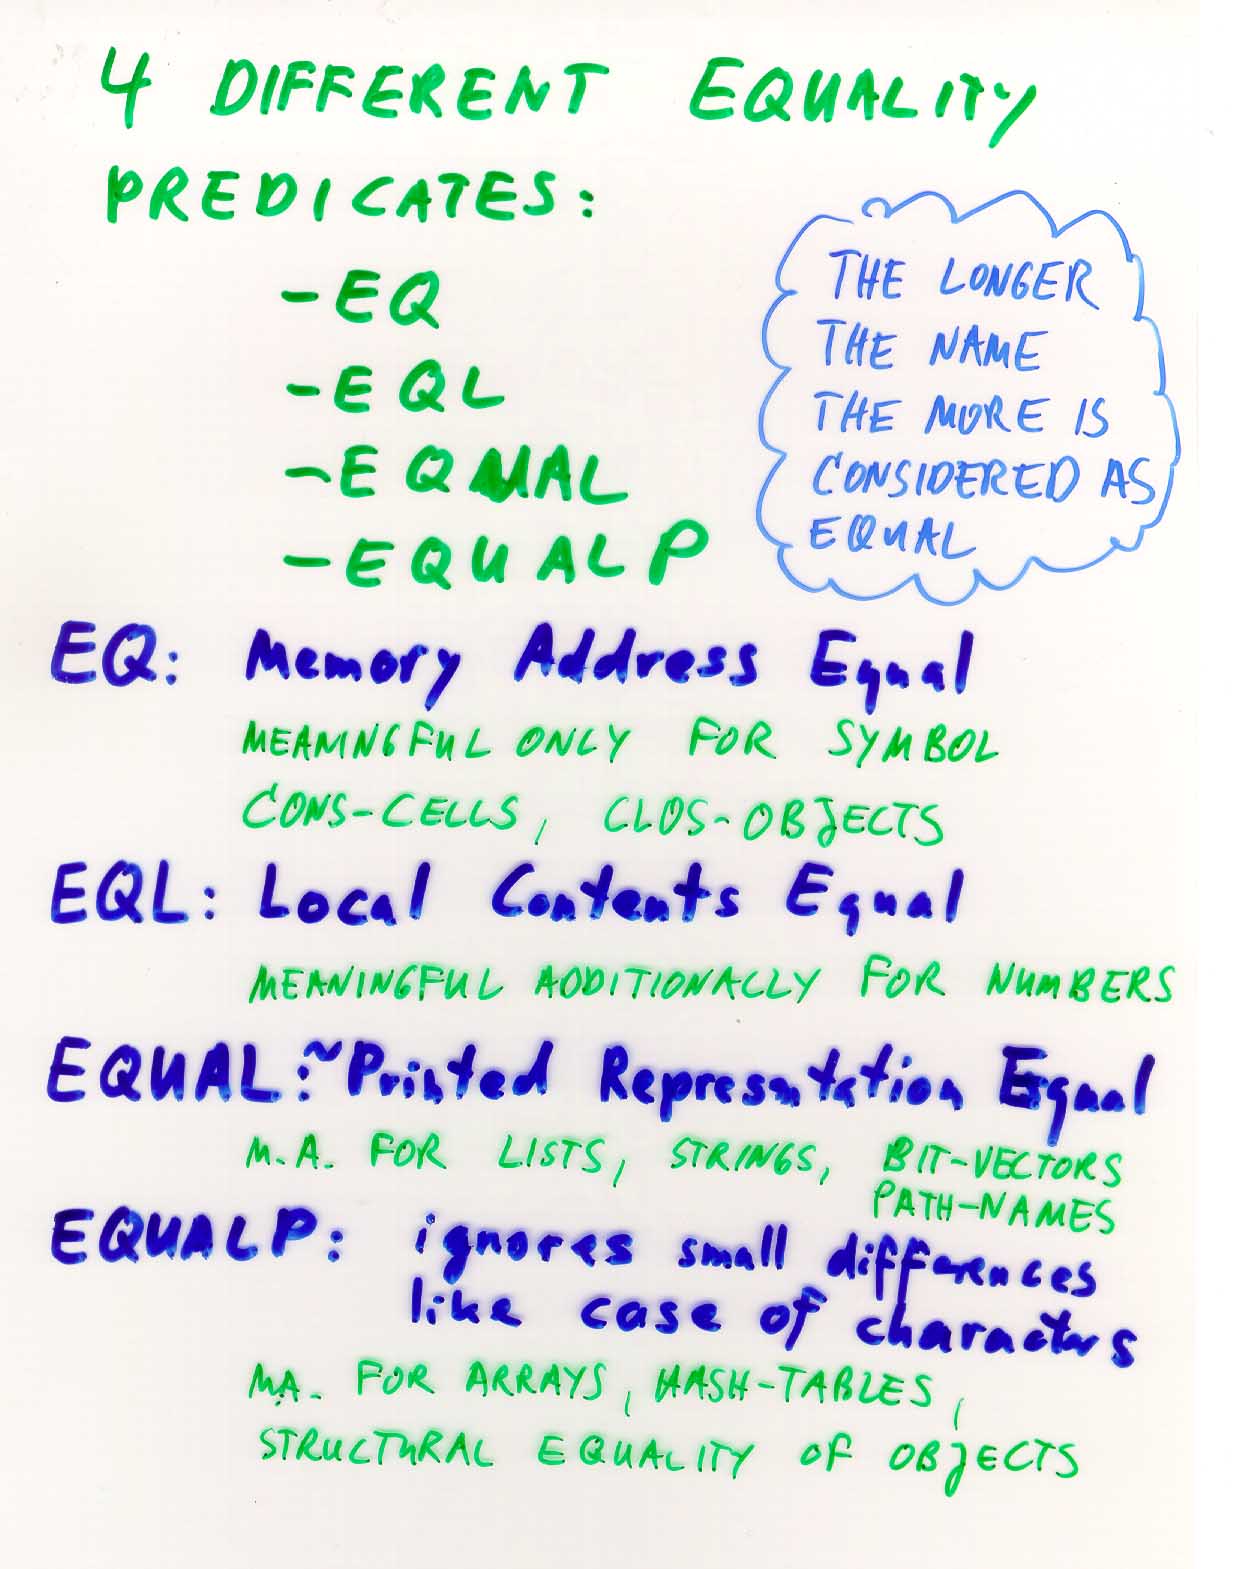 4 DIFFERENT EQUALITY
PREDICATES:
-EQ
-EQL
-EQUAL
-EQUALP
THE LONGER
THE NAME
THE MORE IS
CONSIDERED AS
EQUAL
EQ: Memory Address Equal
MEANINGFUL ONLY FOR SYMBOL
CONS-CELLS, CLOS-OBJECTS
EQL: Local Contents Equal
MEANINGFUL ADDITIONALLY FOR NUMBERS
EQUAL:~Printed Represntation Equal
M.A. FOR LISTS, STRINGS, BIT-VECTORS
PATH-NAMES
EQUALP: ignores small differences
like case of characters
M.A. FOR ARRAYS, HASH-TABLES,
STRUCTURAL EQUALITY OF OBJECTS